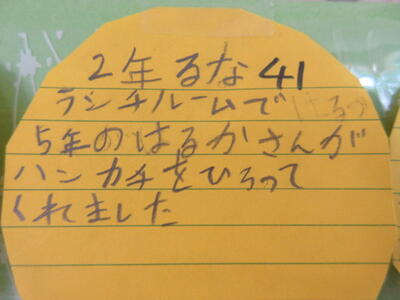 2年るな41
ランチルームで
5年のはるかさんが
ハンカチをひろって
くれました